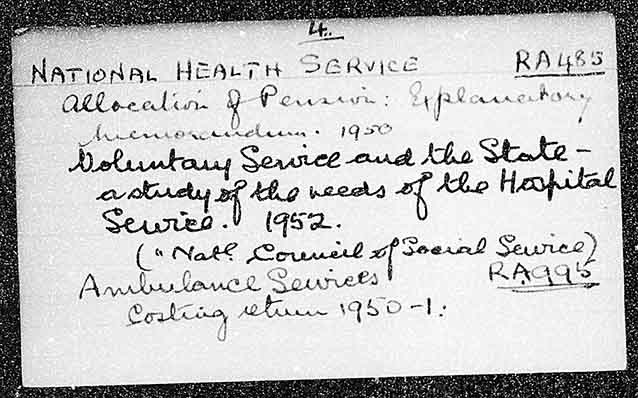 4.
NATIONAL HEALTH SERVICE RA485
Allocation of Pension: Explanatory
Memorandum. 1950
Voluntary Service and the State -
a study of the needs of the Hospital
Service. 1952.
(" Natl. Council of Social Service)
Ambulance Services RA995
Costing return 1950-1.